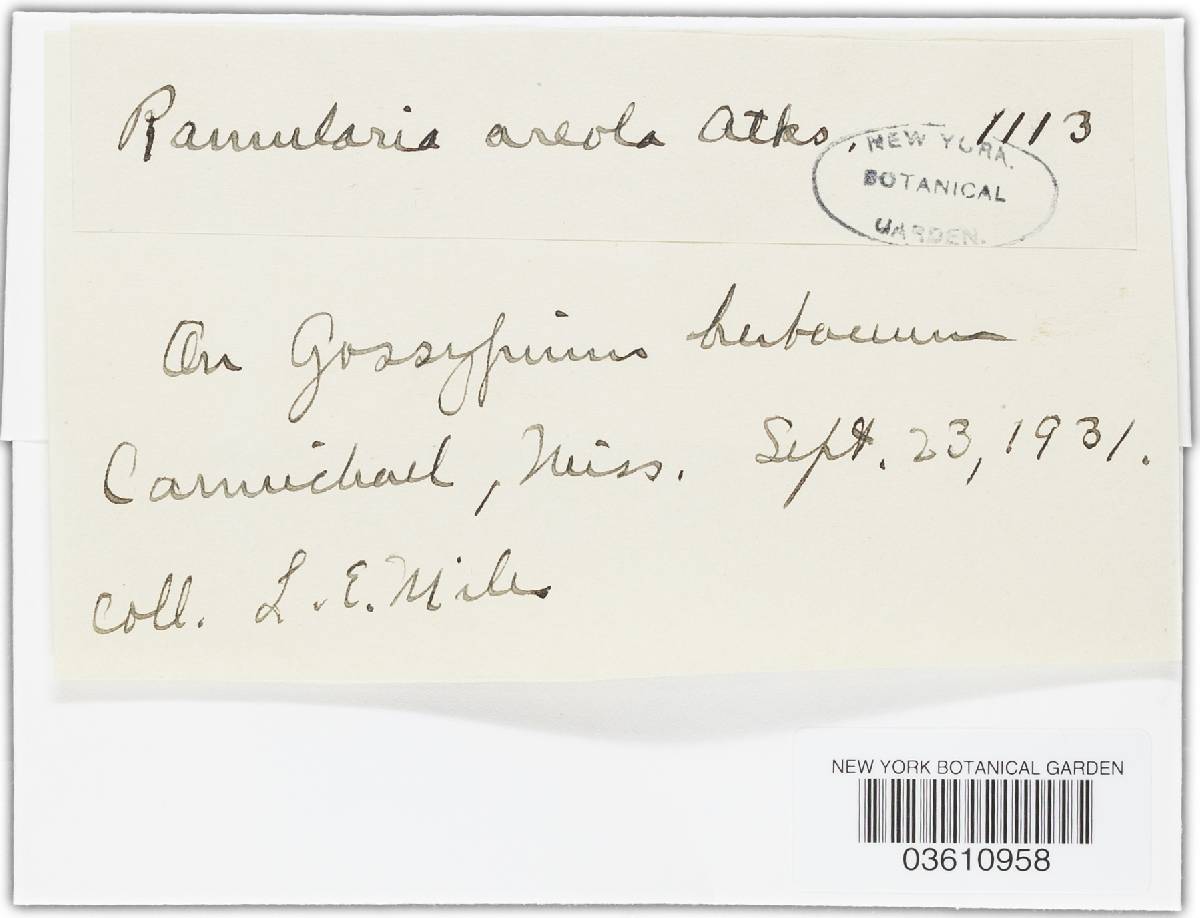 Ramularia areola Atks. 1113
NEW YORK
BOTANICAL
GARDEN.
On Gossypium herbaceum
Carmichael, Miss. Sept. 23, 1931.
coll. L. E. Miles
NEW YORK BOTANICAL GARDEN
03610958